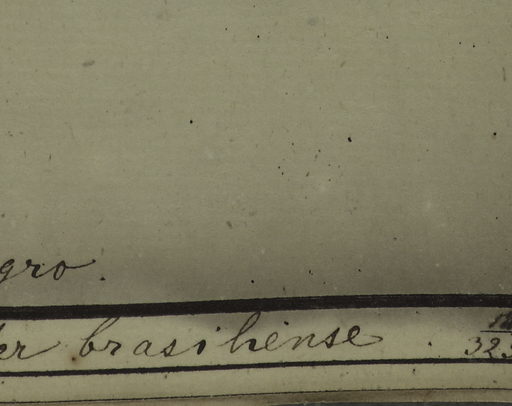 gro.
er brasiliense.